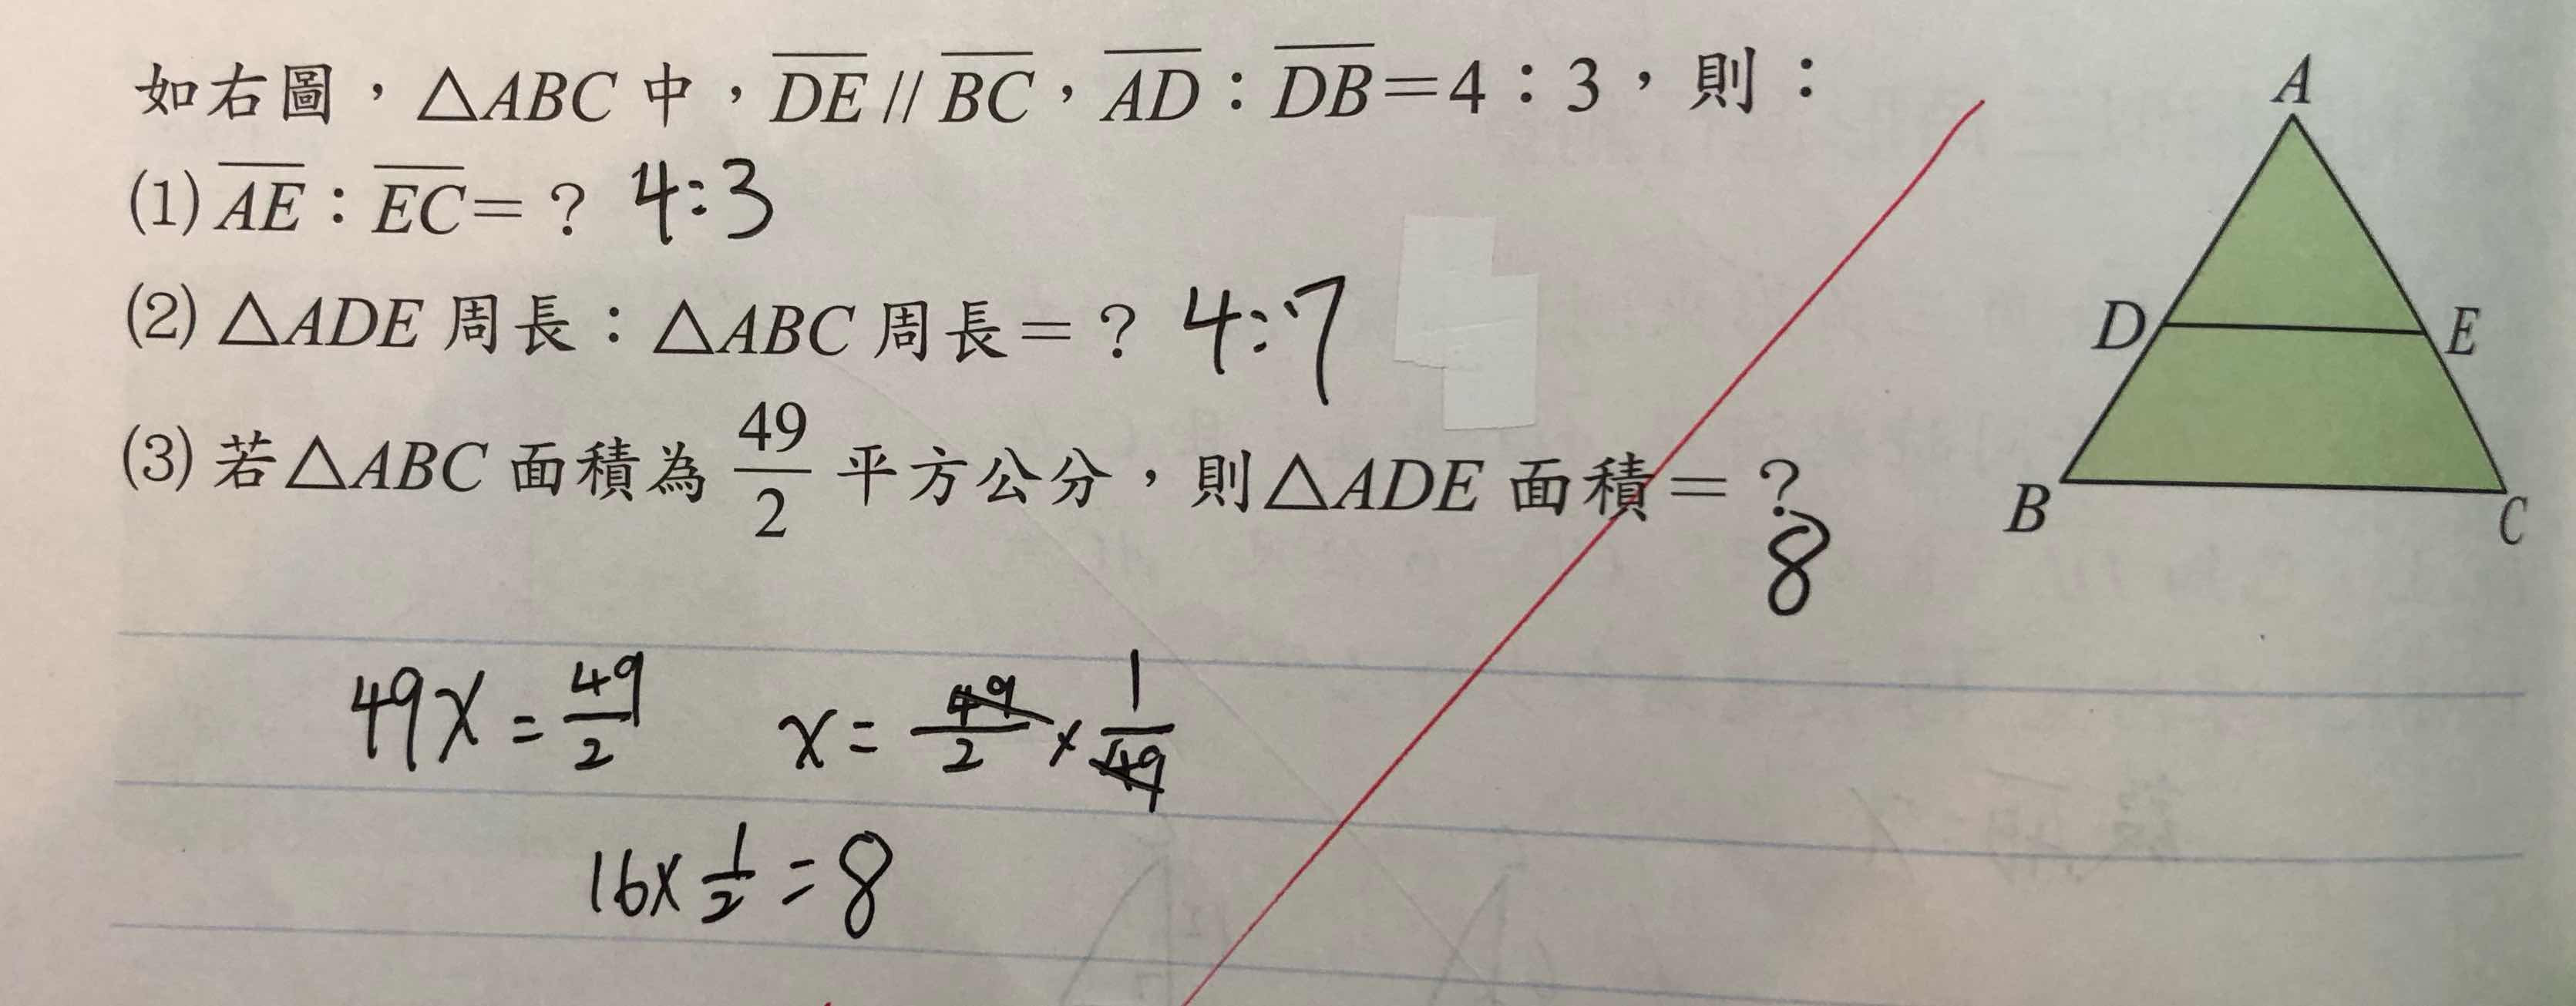 如右圖，△ABC 中，DE // BC，AD：DB=4：3，則：
(1) AE：EC=？ 4:3
(2) △ADE 周長：△ABC 周長=？ 4:7
(3) 若△ABC 面積為 49/2 平方公分，則△ADE 面積=？
8
49x = 49/2 x = 49/2 × 1/49
16 × 1/2 = 8
A
D E
B C